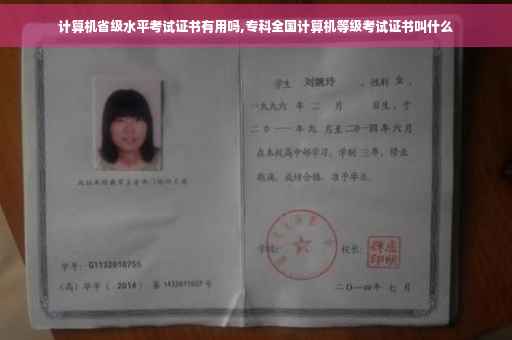 计算机省级水平考试证书有用吗,专科全国计算机等级考试证书叫什么
学生 刘婉玲 ，性别 女 ，
一九九六 年 二 月 日生，于
二0一一年九 月至二0一四年六月
在本校高中部学习，学制 三年，修业
期满，成绩合格，准予毕业。
学校： 校长：
学号： G1132010755
（高）毕字（ 2014 ）第 1432011027 号
二〇一四年 七 月